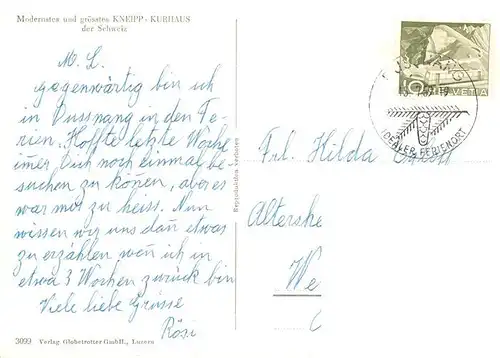 Modernstes und grösstes KNEIPP-KURHAUS
der Schweiz
M. L.
gegenwärtig bin ich
in Dussnang in den Fe-
rien. Hoffte letzte Woche
imer Dich noch einmal be-
suchen zu könen, aber es
war mir zu heiss. Nun
wissen wir uns dan etwas
zu erzählen wen ich in
etwa 3 Wochen zurück bin
Viele liebe Grüsse
Rösi
3099 Verlag Globetrotter GmbH., Luzern
Reproduktion verboten
10
HELVETIA
IDEALER FERIENORT
Frl. Hilda
Altershe
We